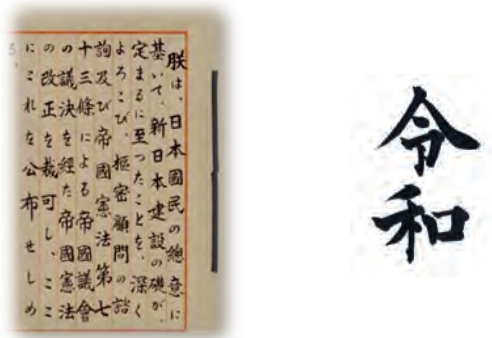 朕は、日本國民の總意に
基いて、新日本建設の礎が、
定まるに至つたことを、深く
よろこび、樞密顧問の諮
詢及び帝國憲法第七
十三條による帝國議會
の議決を経た帝國憲法
の改正を裁可し、ここ
にこれを公布せしめ
る。
令和